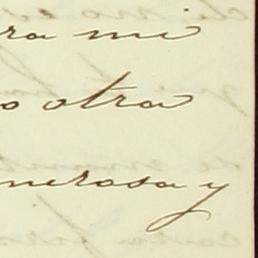 ra mi
o otra
nerosa y